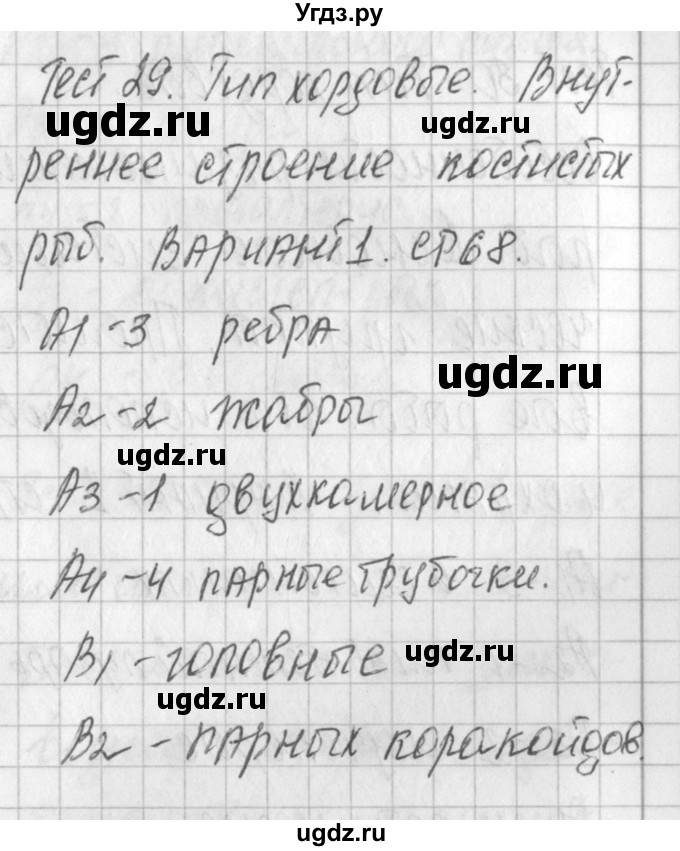 Угдз.ру
Тест 29. Тип хордовые. Внут-
ugdz.ru ugdz.ru
реннее строение костистых
рыб. Вариант 1. стр 68.
А1 - 3 ребра
ugdz.ru
А2 - 2 жабры
ugdz.ru
А3 - 1 двухкамерное
А4 - 4 парные трубочки.
В1 - головные ugdz.ru
ugdz.ru
В2 - парных коракойдов.
ugdz.ru